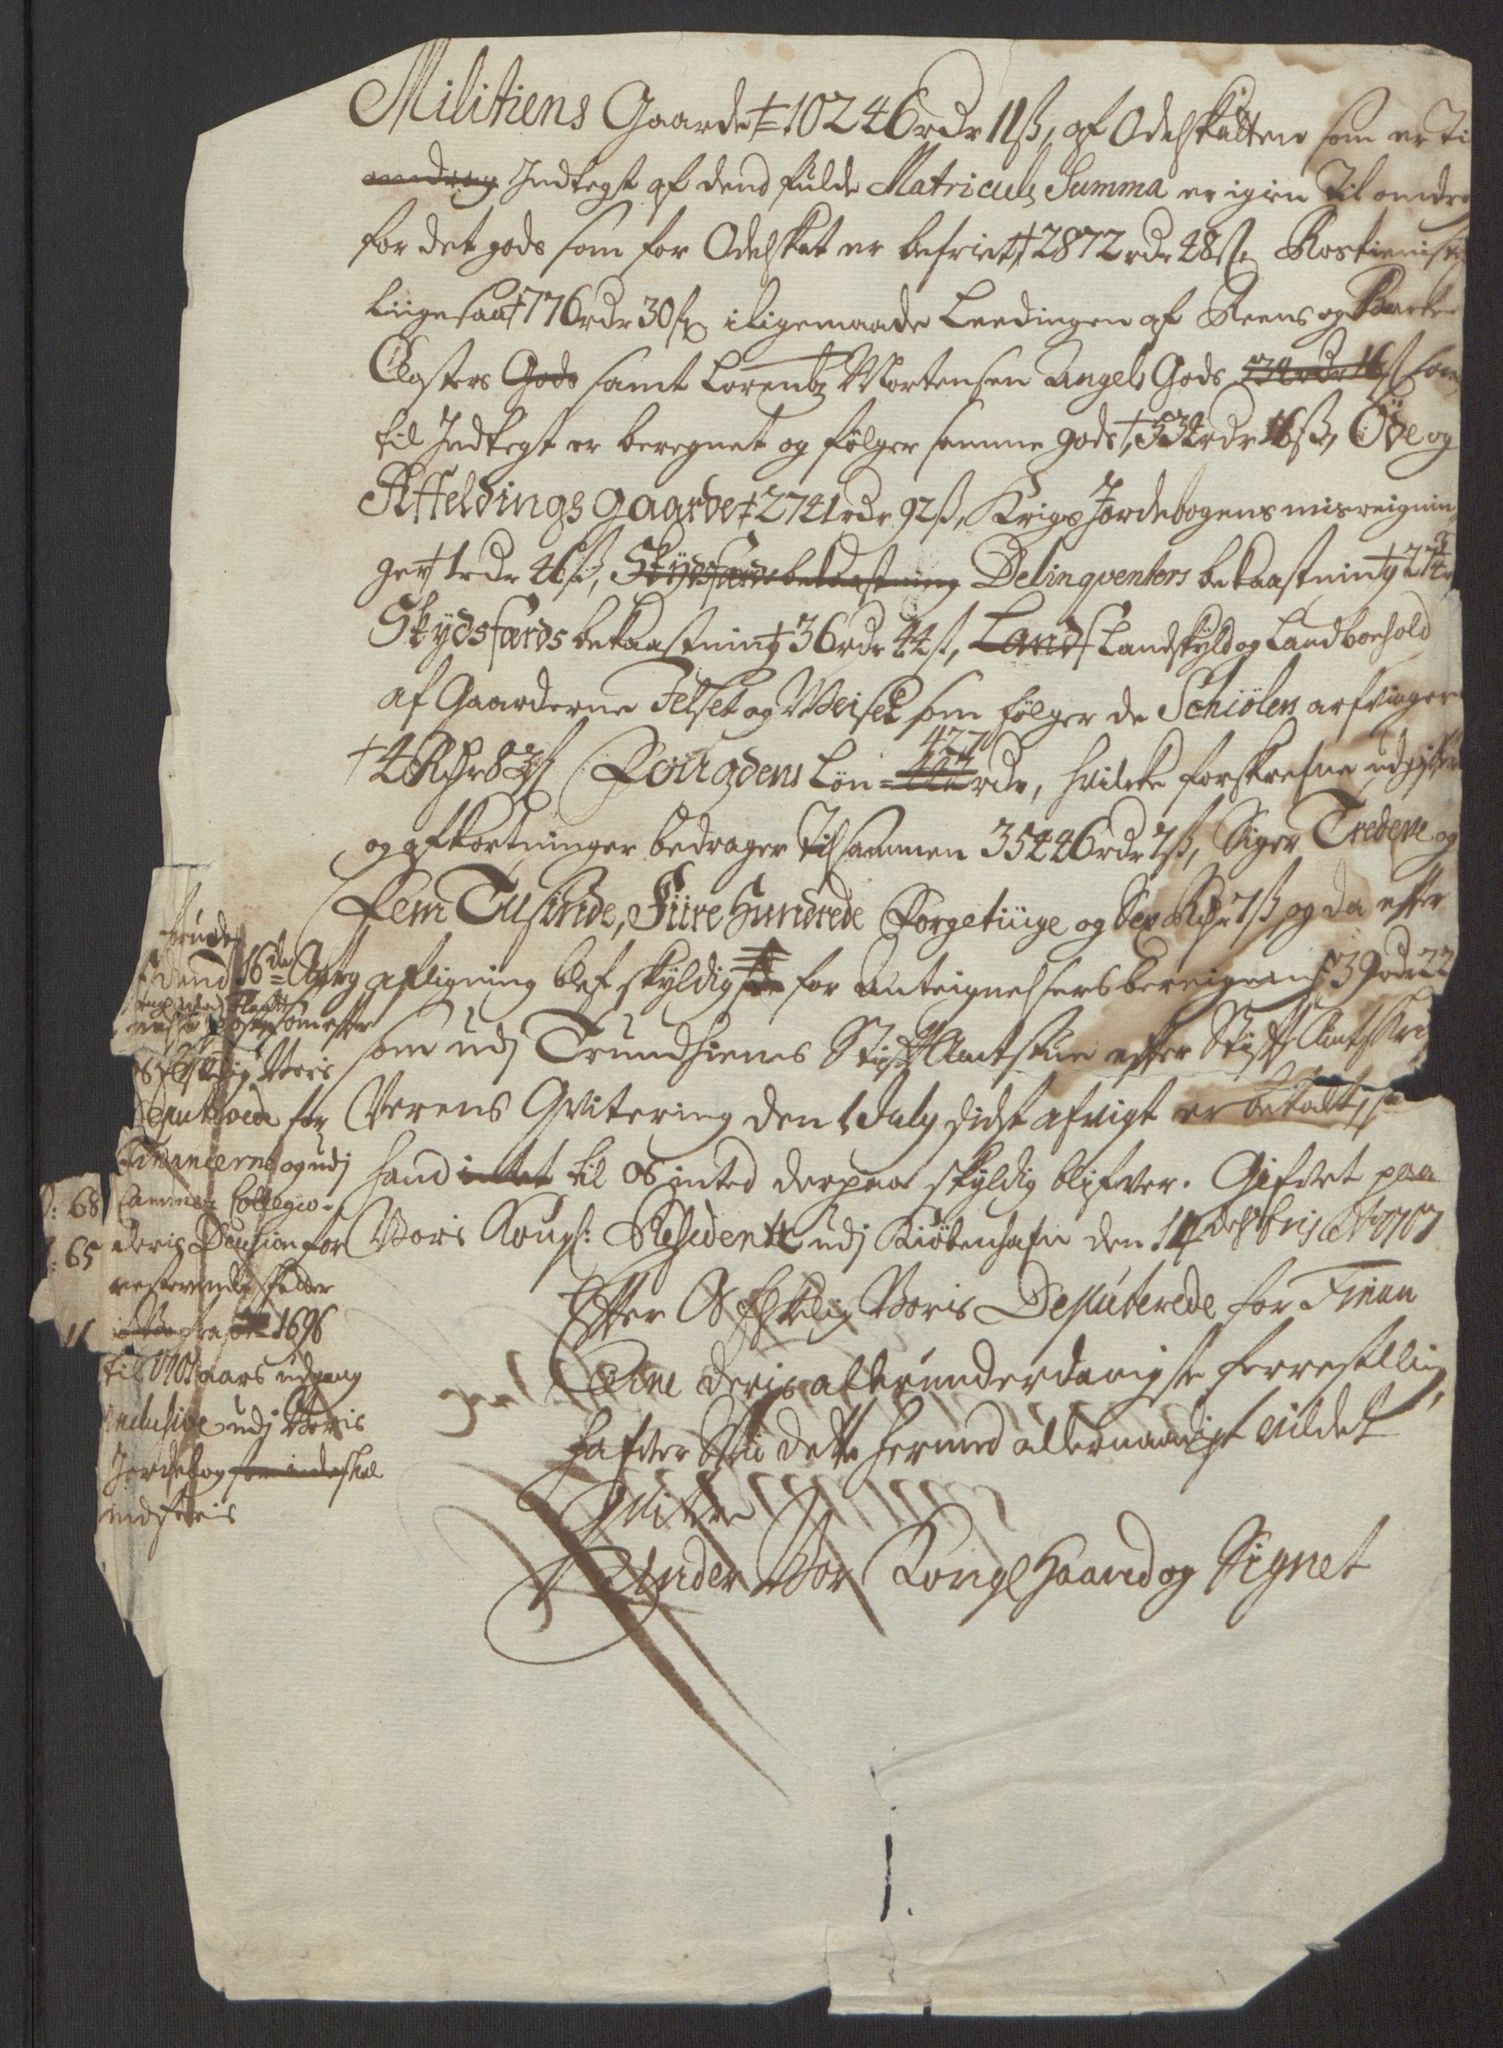 Militiens Gaarde ‡ 10246 rdr 11 ß, af Odelskatten som er Ti
omdrag Indtegt af dend fulde Matriculs Summa er igien Til omdra
for det gods som for Odelskat er befriet ‡ 2872 rdr 48 ß, Rostienist
liigesaa ‡ 776 rdr 30 ß iligemaade Leedingen af Reens og
Closters Gods samt Lorentz Mortensen Angels Gods 534 rdr 16 ß som
til Indtegt er beregnet og følger samme gods, ‡ 534 rdr 16 ß, Öde og
Affeldings gaarde ‡ 2741 rdr 92 ß, Krigs Jordebogens misreignin
ger ‡ 1 rdr 46 ß, Skydsfærds bekaastning Delinqventers bekaastning ‡ 274
Skydsfærds bekaastning ‡ 36 rdr 44 ß, Lands Landskyld og Landboehold
af Gaarderne Fetset og Weiset som følger de Schiölers arfvinger
‡ 4 Rdr 83 ß Fougdens Løn = 427 rdr, hvilcke forskrefne udgifter
og afkortninger bedrager Tilsammen 35446 rdr 7 ß, Siger Tredeve og
Fem Tusinde, Fiire Hundrede Forgetiuge og Sex Rdr 7 ß og da effter
afligning blef skyldig for Anteignelsers bereigning ‡ 39 rdr 22
som udj Trundhiems Stiffts Amtstue effter Stiffts Amts Skri
Verens Qvitering den 1 July sidst afvigt er betalt, saa
hand intet til Os inted derpaa skyldig blifver. Gifvet paa
Vors Kongl: Residentz udj Kiøbenhafn den 14 decembris Ao 1707
Effter Os Elskelig Voris Deputerede for Finan
Cerne deris allerunderdanigste forrestilling,
hafver Vii dette hermed allernaadigst vildet
qvitere
Under Vor Kongl Haand og Signet
dend 16de Aug
Os Elskelig Voris
Deputerede for
Financerne og udj
Cammer Collegio
deris Decision for
resterende skatter
fra 1696
til 1705 aars udgang
inclusive udj Voris
Jordebog for indeskal
indføris
68
65
11